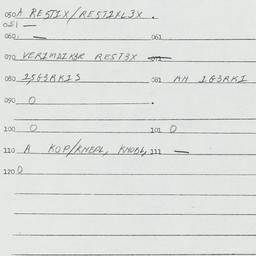 050 A RESTIX/RESTIXL3X .
051 —
060. — 061
070 VERIMDIKBR REST3X 071 —
080 1SG3RKIS 081 AN 1G3RKI
090 0 .
100 0 101 0
110 A KOP/KNEPL, KNOBL, 111 —
120 0